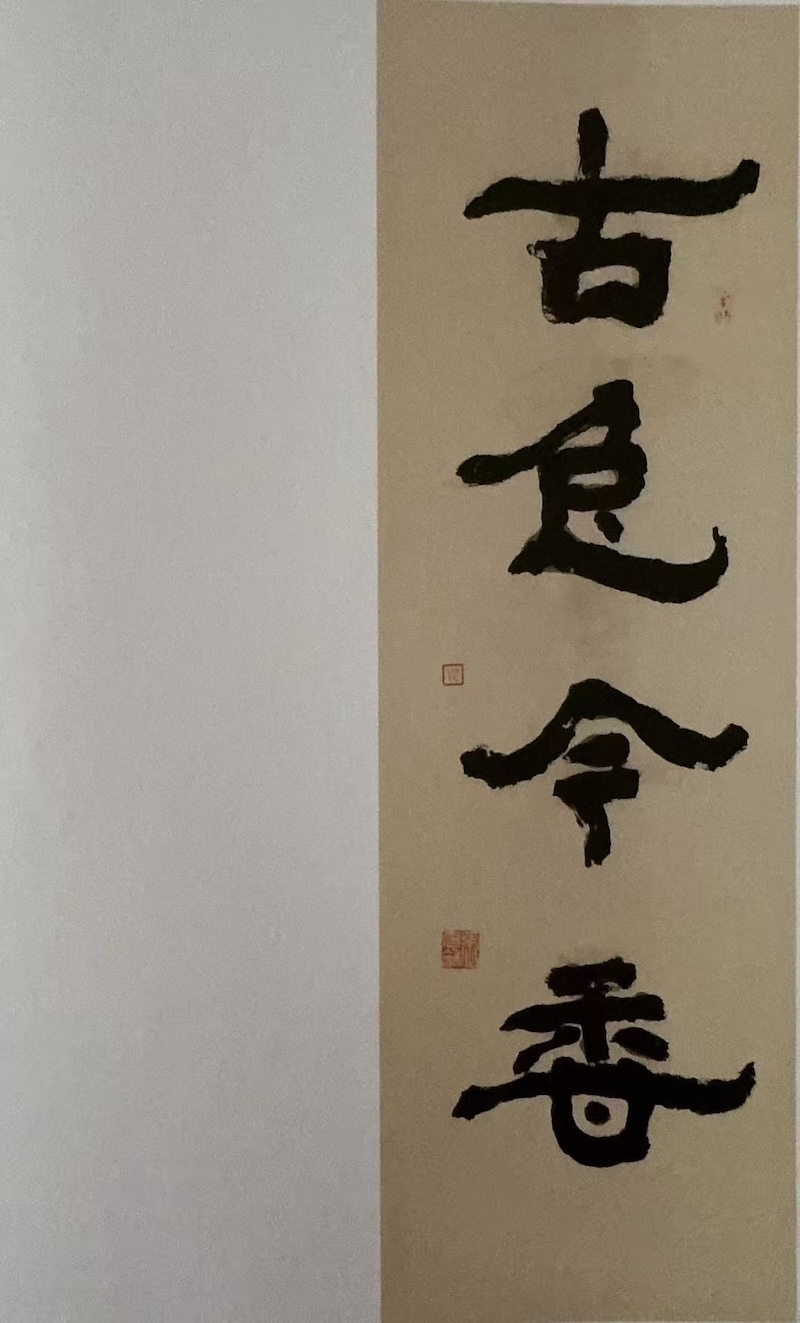 古色今香